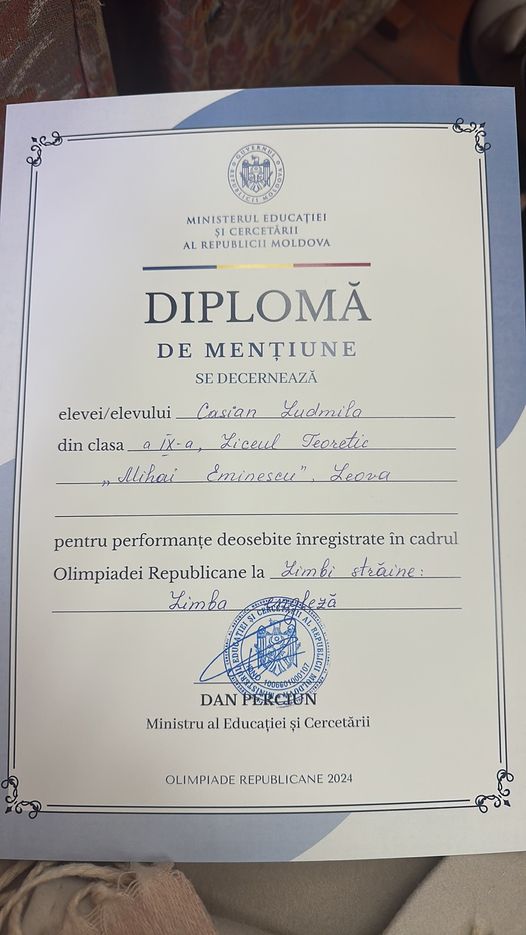 GUVERNUL REPUBLICII MOLDOVA
MINISTERUL EDUCAȚIEI
ȘI CERCETĂRII
AL REPUBLICII MOLDOVA
DIPLOMĂ
DE MENȚIUNE
SE DECERNEAZĂ
elevei/elevului Casian Ludmila
din clasa a IX-a, Liceul Teoretic
„Mihai Eminescu”, Leova
pentru performanțe deosebite înregistrate în cadrul
Olimpiadei Republicane la Limbi străine:
Limba engleză
MINISTERUL EDUCAȚIEI ȘI CERCETĂRII AL REPUBLICII MOLDOVA
IDNO 1006601000107
DAN PERCIUN
Ministru al Educației și Cercetării
OLIMPIADE REPUBLICANE 2024